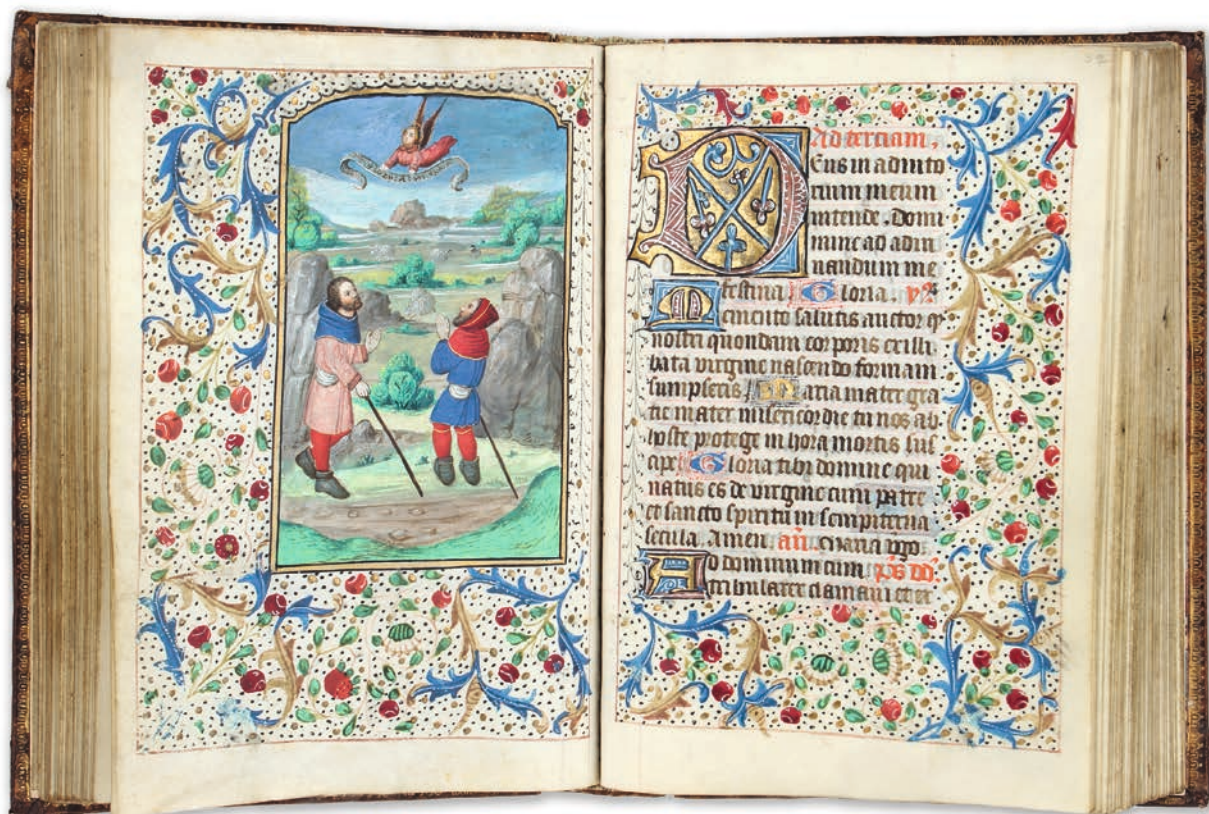 52
Ad terciam.
Deus in adiuto
rium meum
intende. Domi
mine ad adiu
uandum me
festina Gloria. yⁿ
Memento salutis auctor qͥ
nostri quondam corporis ex illi
bata virgine nascendo formam
sumpseris. Maria mater gra
tie mater misericordie tu nos ab
hoste protege in hora mortis sus
cipe. Gloria tibi domine qui
natus es de virgine cum patre
et sancto spiritu in sempiterna
secula. amen. añ. Maria vgo.
Ad dominum cum. p̄s dd.
tribularer clamaui et ex